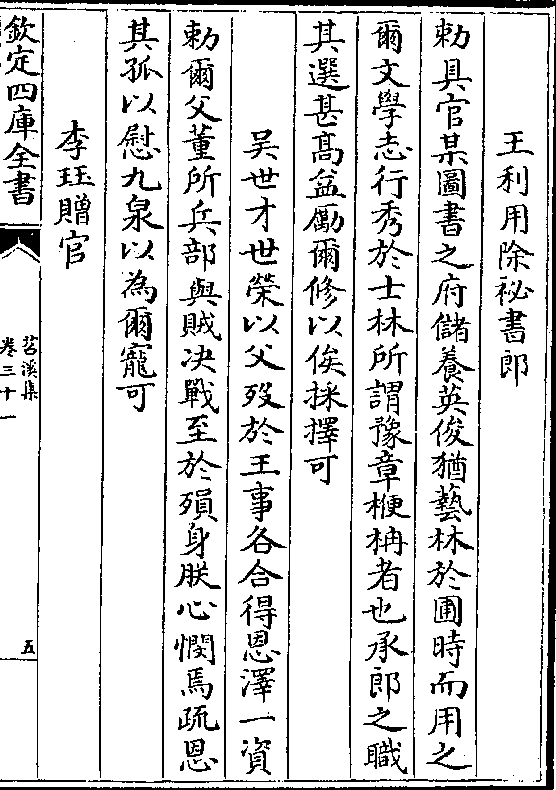 王利用除祕書郎
勅具官某圖書之府儲養英俊猶藝林於圃時而用之
爾文學志行秀於士林所謂豫章楩柟者也承郎之職
其選甚髙益勵爾修以俟採擇可
吴世才世榮以父歿於王事各合得恩澤一資
勅爾父董所兵部與賊决戰至於殞身朕心憫焉疏恩
其孤以慰九泉以為爾寵可
李珏贈官
欽定四庫全書
苕溪集
卷三十一
五